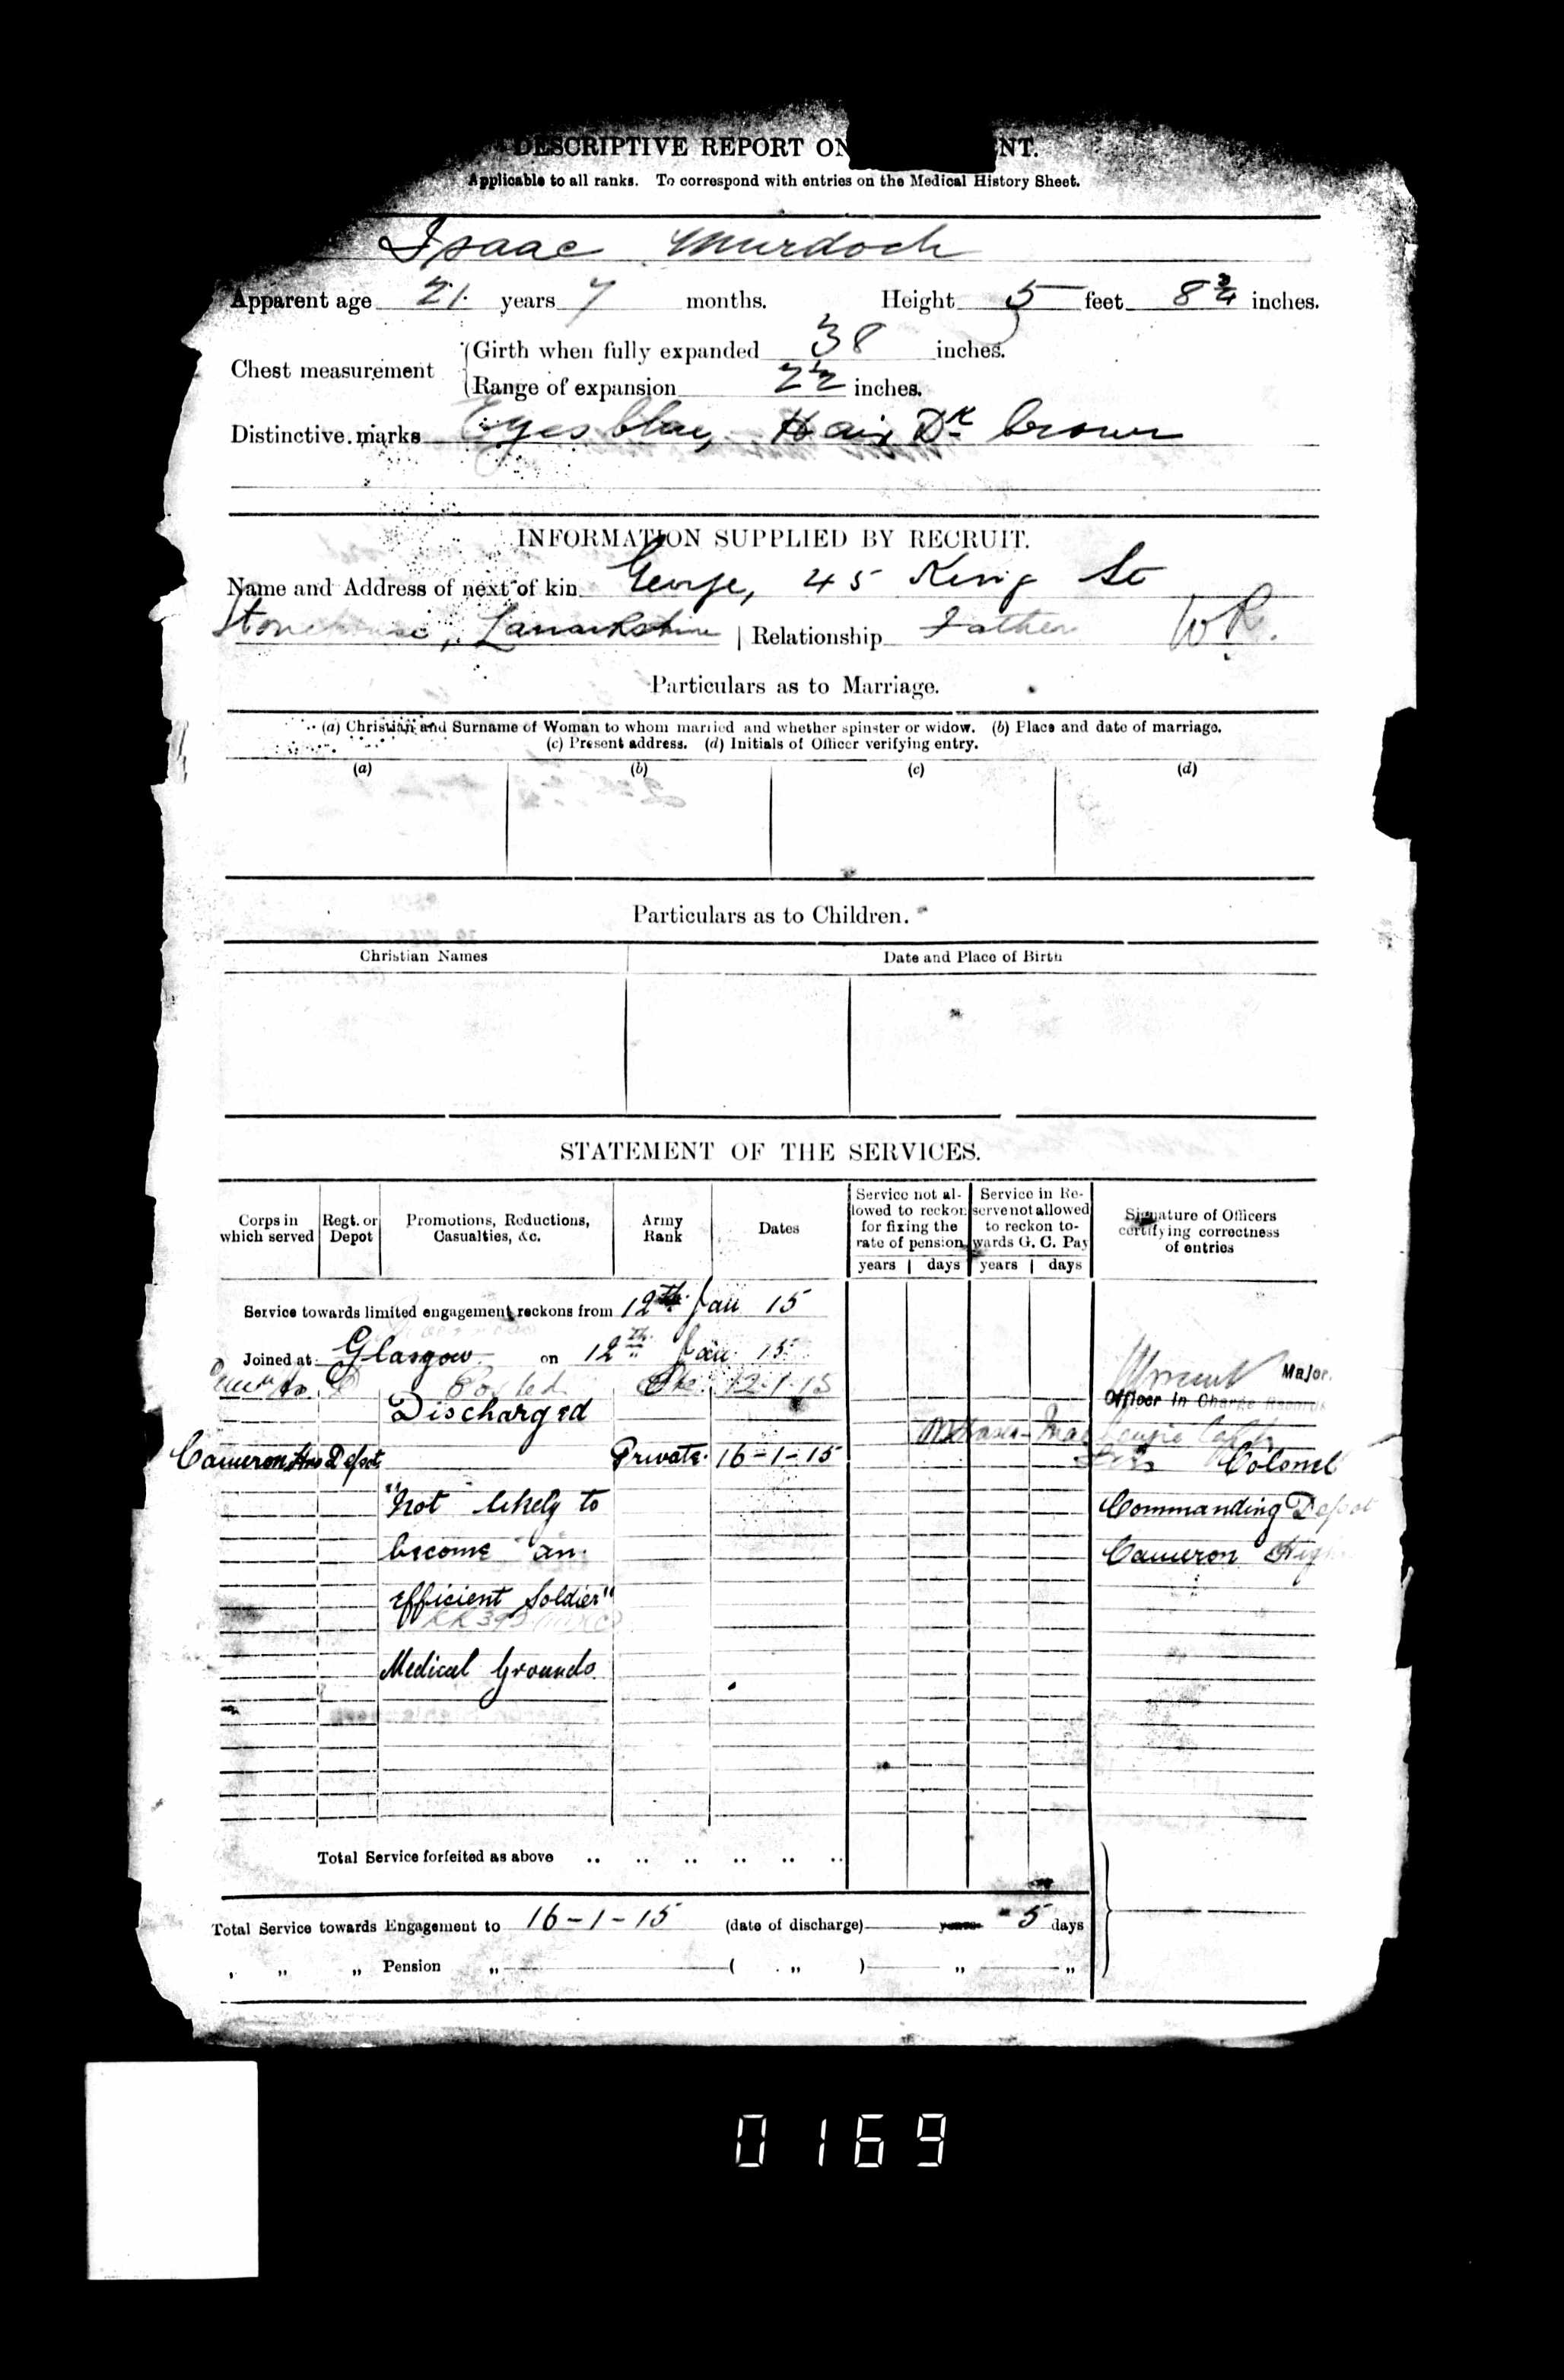 DESCRIPTIVE REPORT ON NT.
Applicable to all ranks. To correspond with entries on the Medical History Sheet.
Isaac Murdoch
Apparent age 21 years 7 months. Height 5 feet 8 3/4 inches.
Chest measurement
Girth when fully expanded 38 inches.
Range of expansion 2 1/2 inches.
Distinctive marks Eyes blue, Hair Dk brown
INFORMATION SUPPLIED BY RECRUIT.
Name and Address of next of kin George, 45 King St
Stonehouse, Lanarkshire | Relationship Father
Particulars as to Marriage.
(a) Christian and Surname of Woman to whom married and whether spinster or widow. (b) Place and date of marriage.
(c) Present address. (d) Initials of Officer verifying entry.
(a) (b) (c) (d)
Particulars as to Children.
Christian Names Date and Place of Birth
STATEMENT OF THE SERVICES.
Corps in which served
Regt. or Depot
Promotions, Reductions, Casualties, &c.
Army Rank
Dates
Service not allowed to reckon for fixing the rate of pension
Service in Reserve not allowed to reckon towards G. C. Pay
Signature of Officers certifying correctness of entries
years days years days
Service towards limited engagement reckons from 12th Jan 15
Joined at Glasgow on 12th Jan 15
Posted Pte. 12-1-15
Major.
Officer in Charge Records
Discharged
Cameron Hrs Depot Private 16-1-15
Colonel
"Not likely to
Commanding Depot
become an
Cameron High
efficient Soldier"
Medical Grounds
Total Service forfeited as above .. .. .. .. .. ..
Total Service towards Engagement to 16-1-15 (date of discharge) years 5 days
" " " Pension " ( " ) " "
0169